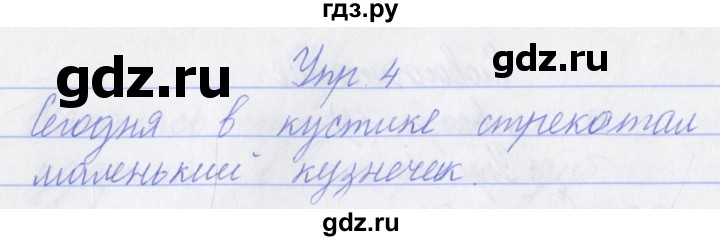 гдз.ру
gdz.ru
Упр. 4
gdz.ru
Сегодня в кустике стрекотал
маленький кузнечек.
gdz.ru